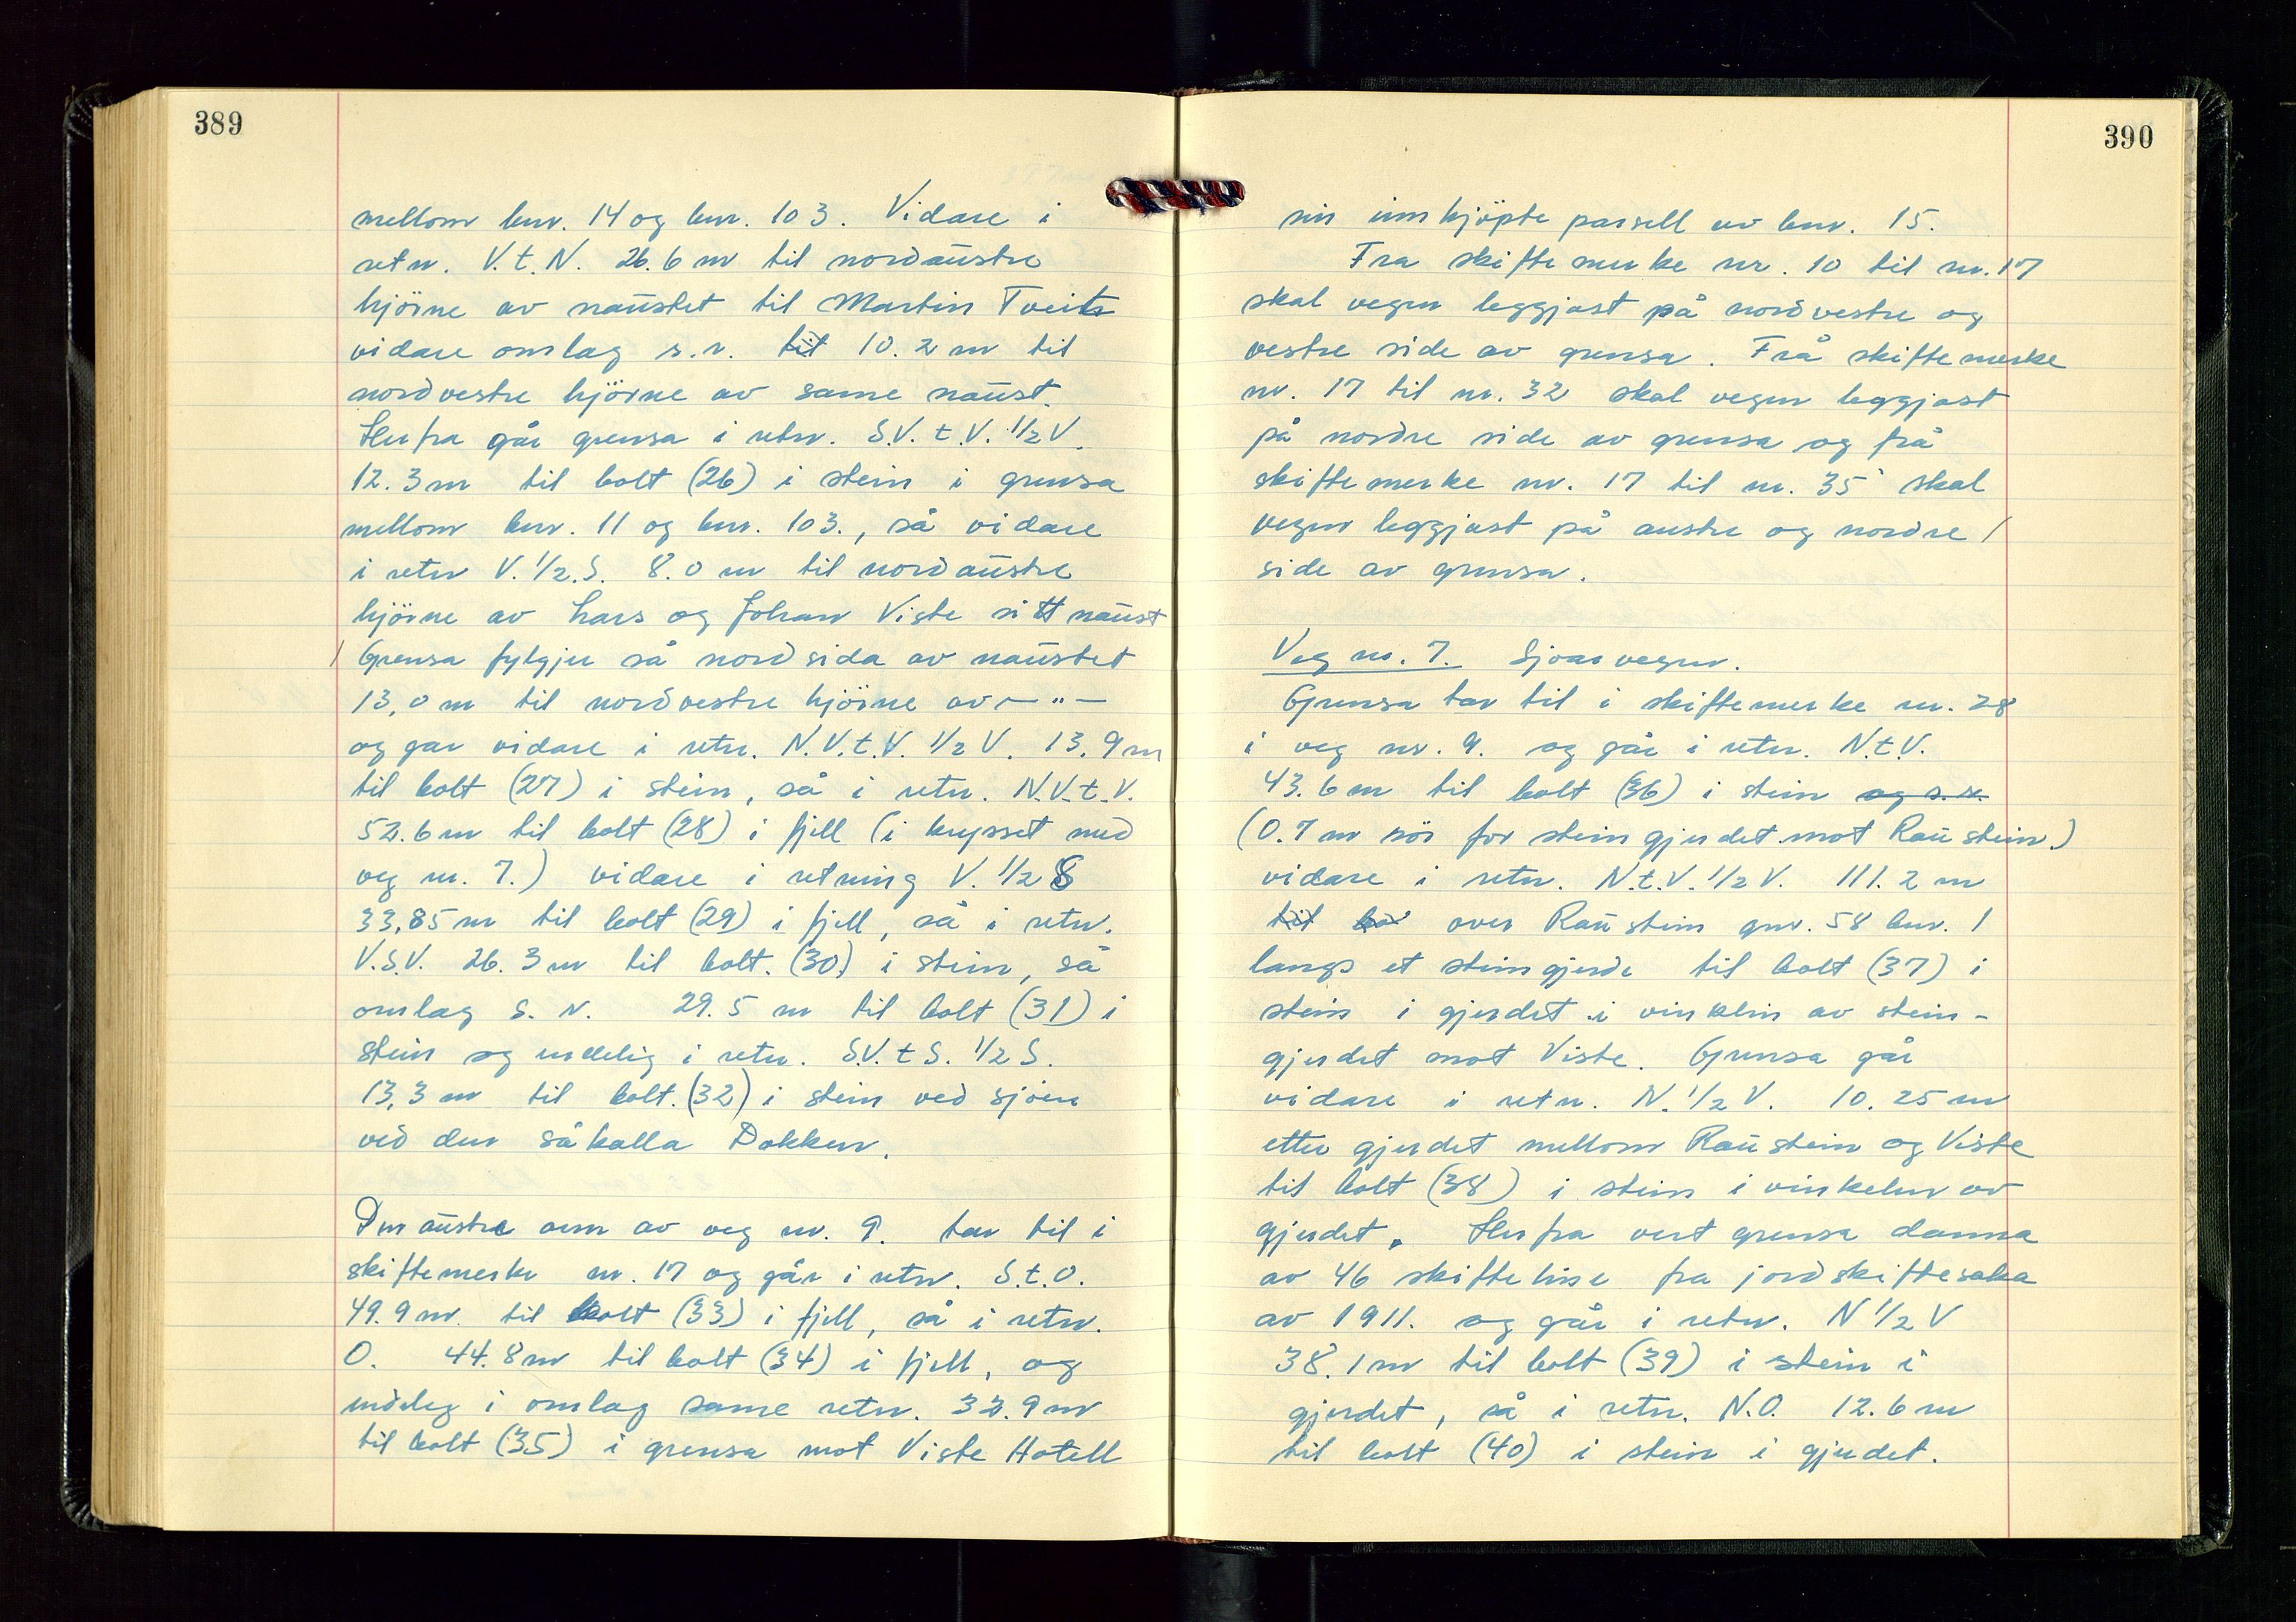 389
mellom bnr. 14 og bnr. 103. Vidare i
retn. V.t.N. 26.6 m til nordaustre
hjörne av naustet til Martin Tveit
vidare omlag s.r. til 10.2 m til
nordvestre hjörne av same naust.
Herfra går grensa i retn. S.V.t.V. 1/2 V.
12.3 m til bolt (26) i stein i grensa
mellom bnr. 11 og bnr. 103., så vidare
i retn V. 1/2.S. 8.0 m til nordaustre
hjörne av Lars og Johan Viste sitt naust
Grensa fylgjer så nordsida av naustet
13,0 m til nordvestre hjörne av — " —
og gar vidare i retn. N.V.t.V. 1/2 V. 13.9 m
til bolt (27) i stein, så i retn. N.V.t.V.
52.6 m til bolt (28) i fjell (i krysset med
veg nr. 7.) vidare i retning V. 1/2 S
33,85 m til bolt (29) i fjell, så i retn.
V.S.V. 26.3 m til bolt. (30) i stein, så
omlag s. r. 29.5 m til bolt (31) i
stein og endelig i retn. S.V.t S. 1/2 S.
13,3 m til bolt. (32) i stein ved sjöen
ved den såkalla Dokken.
Den austre arm av veg nr. 9. tar til i
skiftemerke nr. 17 og går i retn. S.t.O.
49.9 m. til bolt (33) i fjell, så i retn.
O. 44.8 m til bolt (34) i fjell, og
endeleg i omlag same retn. 33.9 m
til bolt (35) i grensa mot Viste Hotell
390
sin innkjöpte parsell av bnr. 15.
Fra skiftemerke nr. 10 til nr. 17
skal vegen leggjast på nordvestre og
vestre side av grensa. Frå skiftemerke
nr. 17 til nr. 32 skal vegen leggjast
på nordre side av grensa og frå
skiftemerke nr. 17 til nr. 35 skal
vegen leggjast på austre og nordre
side av grensa.
Veg nr. 7. Sjoarvegen.
Grensa tar til i skiftemerke nr. 28
i veg nr. 9. og går i retn. N.t.V.
43.6 m til bolt (36) i stein og s.r.
(0.7 m sör for steingjerdet mot Raustein.)
vidare i retn. N.t.V. 1/2 V. 111.2 m
til bo over Raustein gnr. 58 bnr. 1
langs et steingjerde til bolt (37) i
stein i gjerdet i vinklen av stein-
gjerdet mot Viste. Grensa går
vidare i retn. N. 1/2 V. 10.25 m
etter gjerdet mellom Raustein og Viste
til bolt (38) i stein i vinkelen av
gjerdet. Herfra vert grensa danna
av 46 skiftelinse fra jordskiftesaka
av 1911. og går i retn. N 1/2 V
38.1 m til bolt (39) i stein i
gjerdet, så i retn. N.O. 12.6 m
til bolt (40) i stein i gjerdet.